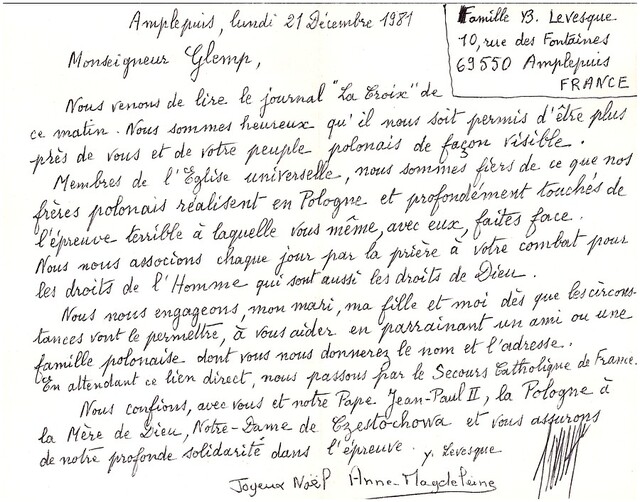 Amplepuis, lundi 21 Décembre 1981
Famille B. Levesque.
10, rue des Fontaines
69550 Amplepuis
FRANCE
Monseigneur Glemp,
Nous venons de lire le journal "La Croix" de
ce matin. Nous sommes heureux qu'il nous soit permis d'être plus
près de vous et de votre peuple polonais de façon visible.
Membres de l'Eglise universelle, nous sommes fiers de ce que nos
frères polonais réalisent en Pologne et profondément touchés de
l'épreuve terrible à laquelle vous même, avec eux, faites face.
Nous nous associons chaque jour par la prière à votre combat pour
les droits de l'Homme qui sont aussi les droits de Dieu.
Nous nous engageons, mon mari, ma fille et moi dès que les circons-
tances vont le permettre, à vous aider en parrainant un ami ou une
famille polonaise dont vous nous donnerez le nom et l'adresse.
En attendant ce lien direct, nous passons par le Secours Catholique de France.
Nous confions, avec vous et notre Pape Jean-Paul II, la Pologne à
la Mère de Dieu, Notre-Dame de Czestochowa et vous assurons
de notre profonde solidarité dans l'épreuve. y. Levesque
Joyeux Noël Anne-Magdeleine